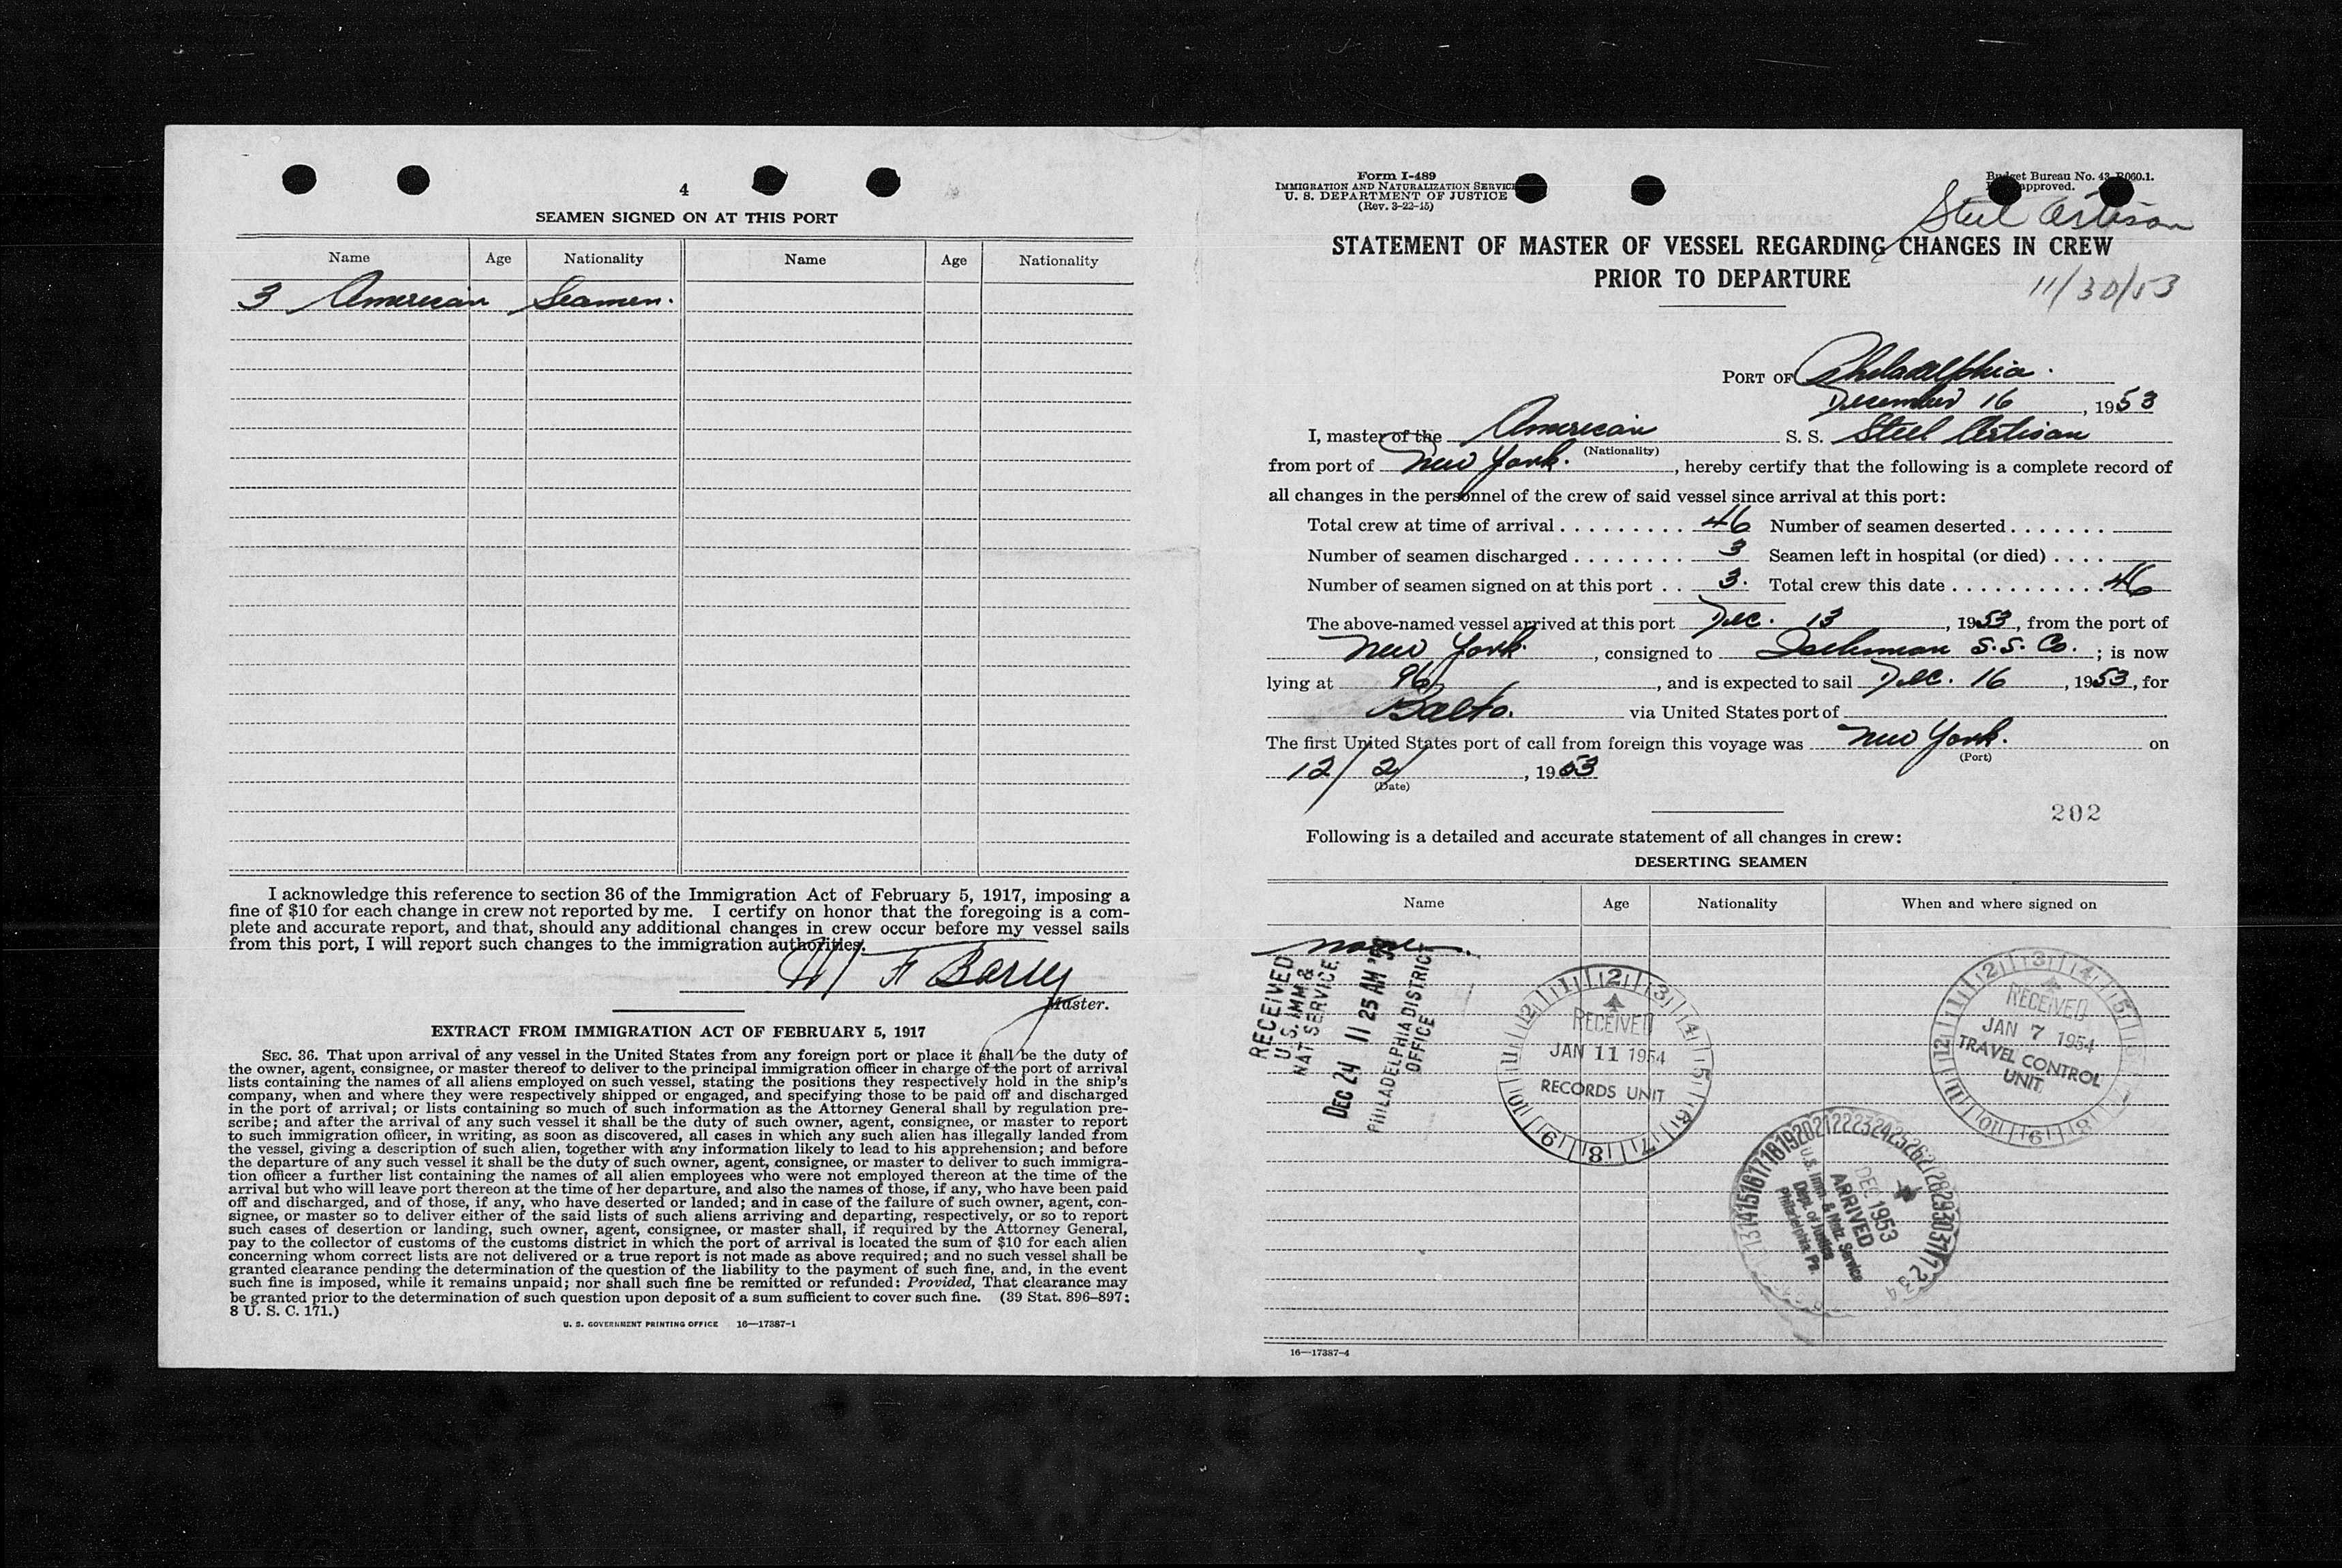 4
SEAMEN SIGNED ON AT THIS PORT
Name Age Nationality Name Age Nationality
3 American Seamen.
I acknowledge this reference to section 36 of the Immigration Act of February 5, 1917, imposing a
fine of $10 for each change in crew not reported by me. I certify on honor that the foregoing is a com-
plete and accurate report, and that, should any additional changes in crew occur before my vessel sails
from this port, I will report such changes to the immigration authorities.
Master.
EXTRACT FROM IMMIGRATION ACT OF FEBRUARY 5, 1917
SEC. 36. That upon arrival of any vessel in the United States from any foreign port or place it shall be the duty of
the owner, agent, consignee, or master thereof to deliver to the principal immigration officer in charge of the port of arrival
lists containing the names of all aliens employed on such vessel, stating the positions they respectively hold in the ship's
company, when and where they were respectively shipped or engaged, and specifying those to be paid off and discharged
in the port of arrival; or lists containing so much of such information as the Attorney General shall by regulation pre-
scribe; and after the arrival of any such vessel it shall be the duty of such owner, agent, consignee, or master to report
to such immigration officer, in writing, as soon as discovered, all cases in which any such alien has illegally landed from
the vessel, giving a description of such alien, together with any information likely to lead to his apprehension; and before
the departure of any such vessel it shall be the duty of such owner, agent, consignee, or master to deliver to such immigra-
tion officer a further list containing the names of all alien employees who were not employed thereon at the time of the
arrival but who will leave port thereon at the time of her departure, and also the names of those, if any, who have been paid
off and discharged, and of those, if any, who have deserted or landed; and in case of the failure of such owner, agent, con-
signee, or master so to deliver either of the said lists of such aliens arriving and departing, respectively, or so to report
such cases of desertion or landing, such owner, agent, consignee, or master shall, if required by the Attorney General,
pay to the collector of customs of the customs district in which the port of arrival is located the sum of $10 for each alien
concerning whom correct lists are not delivered or a true report is not made as above required; and no such vessel shall be
granted clearance pending the determination of the question of the liability to the payment of such fine, and, in the event
such fine is imposed, while it remains unpaid; nor shall such fine be remitted or refunded: Provided, That clearance may
be granted prior to the determination of such question upon deposit of a sum sufficient to cover such fine. (39 Stat. 896–897;
8 U. S. C. 171.)
U. S. GOVERNMENT PRINTING OFFICE 16—17387-1
Form I-489
IMMIGRATION AND NATURALIZATION SERVICE
U. S. DEPARTMENT OF JUSTICE
(Rev. 3-22-45)
Budget Bureau No. 43-R060.1.
approved.
Steel Artisan
STATEMENT OF MASTER OF VESSEL REGARDING CHANGES IN CREW
PRIOR TO DEPARTURE
11/30/53
PORT OF Philadelphia.
December 16, 1953
I, master of the American S. S. Steel Artisan
(Nationality)
from port of New York., hereby certify that the following is a complete record of
all changes in the personnel of the crew of said vessel since arrival at this port:
Total crew at time of arrival . . . . . . . . . 46 Number of seamen deserted . . . . . . .
Number of seamen discharged . . . . . . . . 3 Seamen left in hospital (or died) . . . .
Number of seamen signed on at this port . . 3. Total crew this date . . . . . . . . . . . 46
The above-named vessel arrived at this port Dec. 13, 1953, from the port of
New York, consigned to S.S. Co.; is now
lying at 96, and is expected to sail Dec. 16, 1953, for
Balto. via United States port of
The first United States port of call from foreign this voyage was New York. on
(Port)
12/2/, 1953
(Date)
202
Following is a detailed and accurate statement of all changes in crew:
DESERTING SEAMEN
Name Age Nationality When and where signed on
none.
RECEIVED
U.S. IMM &
NAT SERVICE
DEC 24 11 25 AM '53
PHILADELPHIA DISTRICT
OFFICE
RECEIVED
JAN 11 1954
RECORDS UNIT
RECEIVED
JAN 7 1954
TRAVEL CONTROL
UNIT
DEC 1953
ARRIVED
U.S. Imm. & Natz. Service
Dept. of Justice
Philadelphia, Pa.
16—17387-4